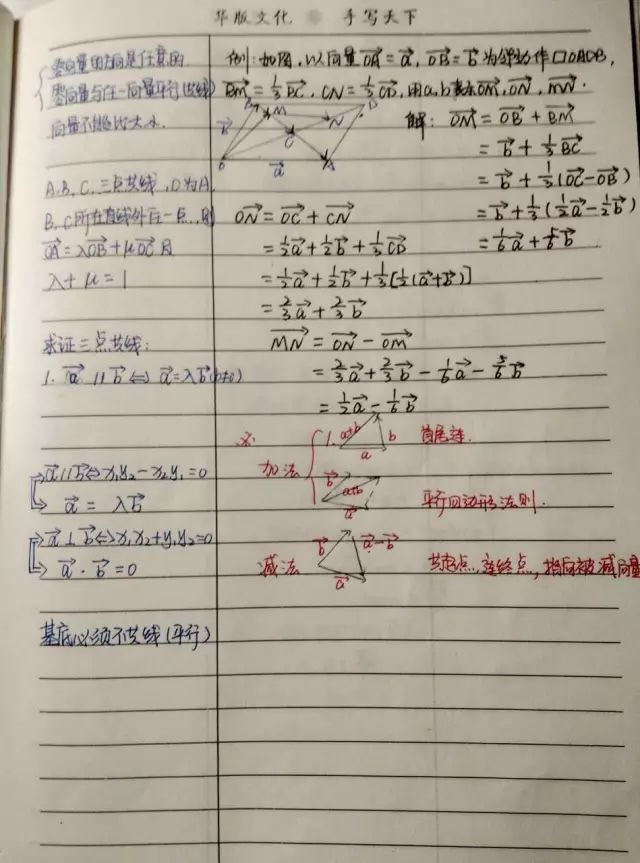 华版文化 手写天下
零向量的方向是任意的
零向量与任一向量平行(共线)
向量不能比大小.
A.B.C.三点共线,O为A.
B.C所在直线外任一点,则
OA=λOB+μOC 且
λ+μ=1
求证三点共线:
1. a∥b⇔a=λb(b≠0)
a∥b⇔x₁y₂-x₂y₁=0
a=λb
a⊥b⇔x₁x₂+y₁y₂=0
a·b=0
基底必须不共线(平行)
例:如图,以向量OA=a, OB=b为邻边作▱OADB,
BM=1/3BC, CN=1/3CD,用a,b表示OM,ON,MN.
B M D
b N
C
O a A
解: OM=OB+BM
=b+1/3BC
=b+1/3(OC-OB)
=b+1/3(1/2a-1/2b)
=1/6a+5/6b
ON=OC+CN
=1/2a+1/2b+1/3CD
=1/2a+1/2b+1/3[1/2(a+b)]
=2/3a+2/3b
MN=ON-OM
=2/3a+2/3b-1/6a-5/6b
=1/2a-1/6b
※
加法
1. a+b b 首尾连.
a
b a+b 平行四边形法则.
a
减法 b a-b 共起点,连终点,指向被减向量
a